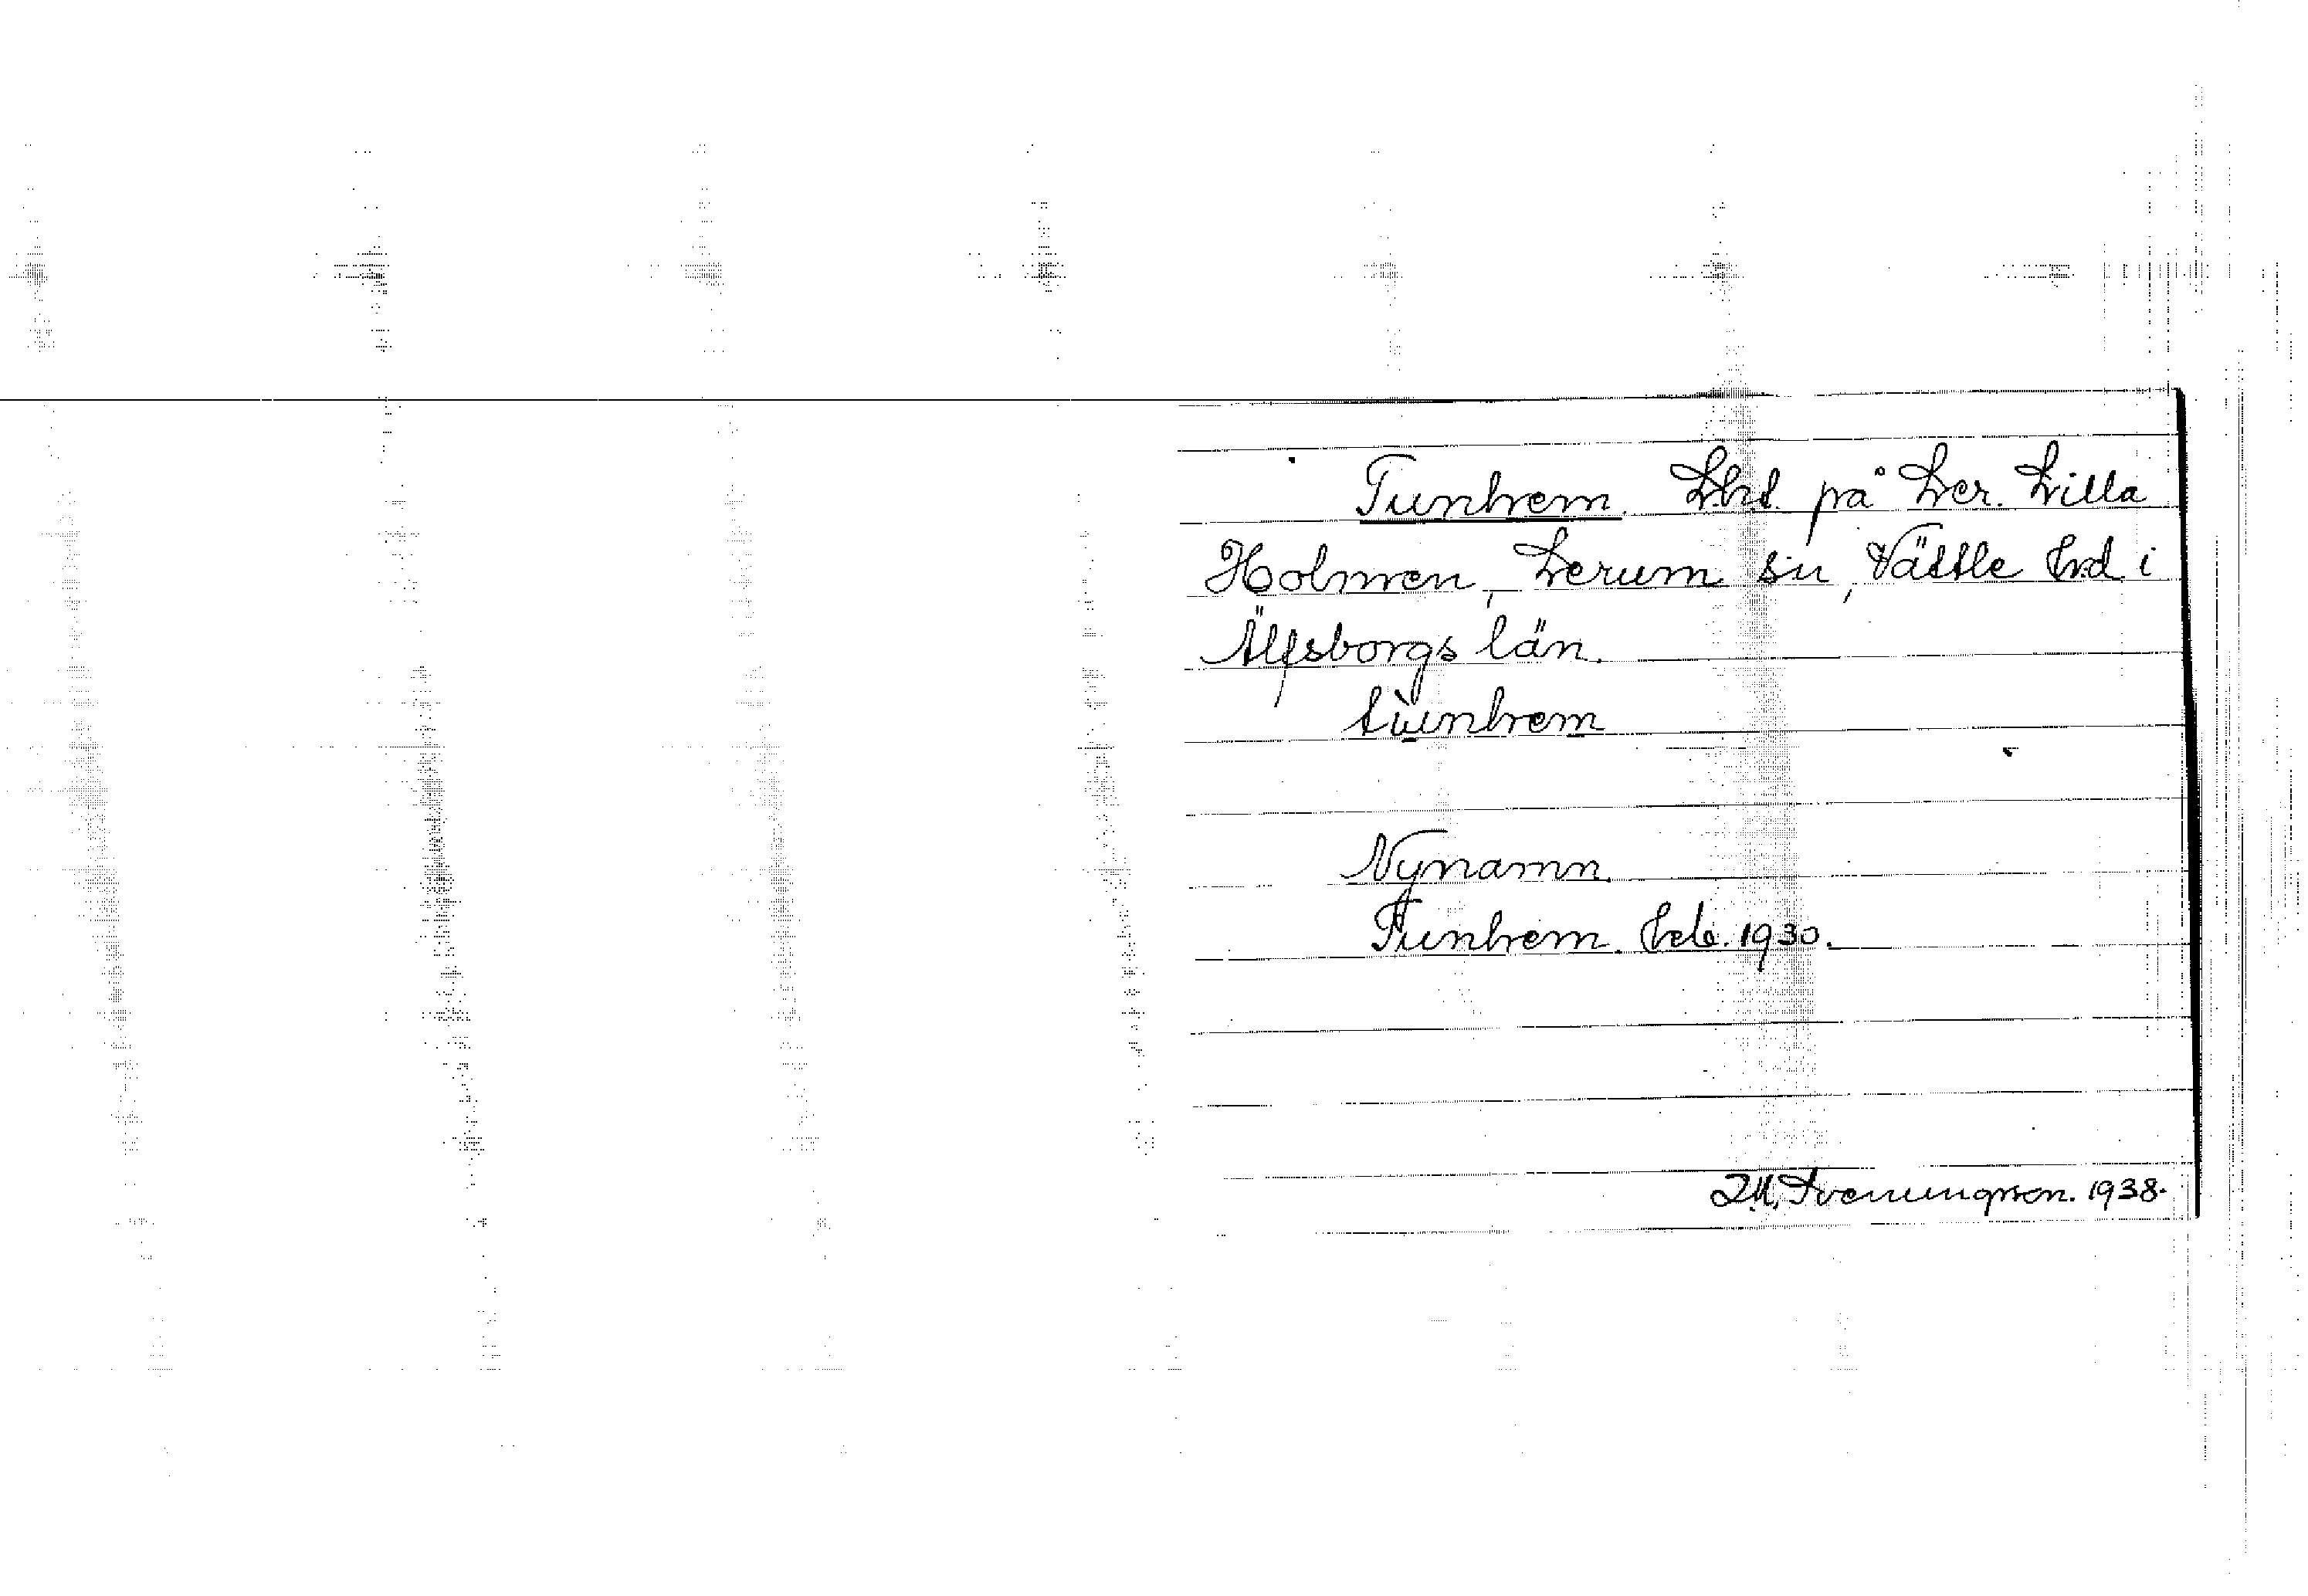 Tunhem. Lht. på Ler. Lilla
Holmen, Lerum sn, Vättle hd i
Älfsborgs län.
tùnhem
Nynamn.
Tunhem. Beb. 1930.
Svenungsson. 1938.